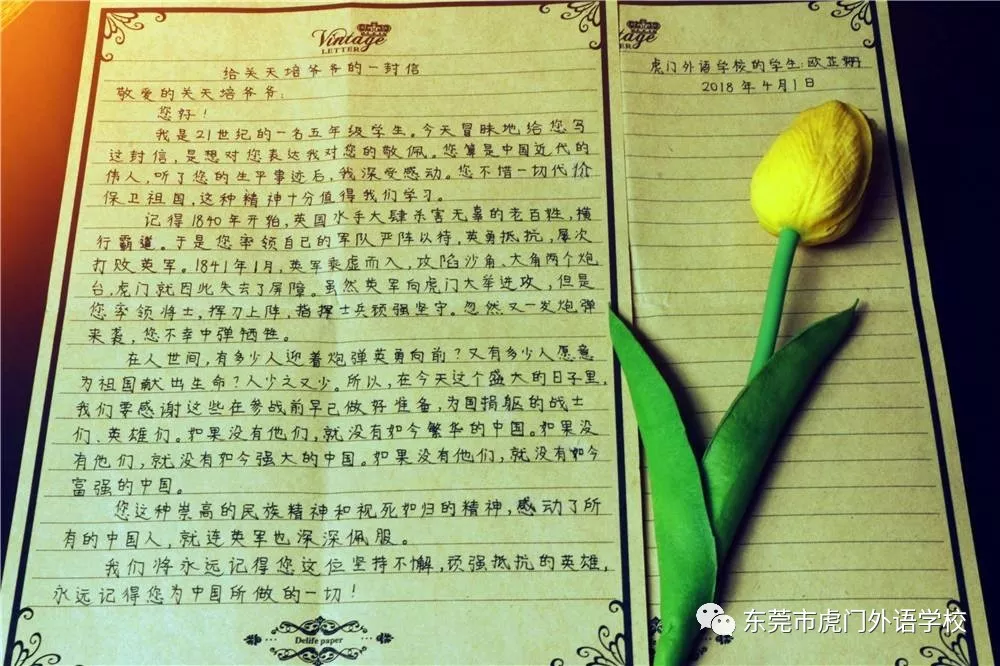 Vintage
LETTER
给关天培爷爷的一封信
敬爱的关天培爷爷:
您好!
我是21世纪的一名五年级学生。今天冒昧地给您写
这封信,是想对您表达我对您的敬佩。您算是中国近代的
伟人,听了您的生平事迹后,我深受感动。您不惜一切代价
保卫祖国,这种精神十分值得我们学习。
记得1840年开始,英国水手大肆杀害无辜的老百姓,横
行霸道。于是您率领自己的军队严阵以待,英勇抵抗,屡次
打败英军。1841年1月,英军乘虚而入,攻陷沙角、大角两个炮
台,虎门就因此失去了屏障。虽然英军向虎门大举进攻,但是
您率领将士,挥刀上阵,指挥士兵顽强坚守。忽然又一发炮弹
来袭,您不幸中弹牺牲。
在人世间,有多少人迎着炮弹英勇向前?又有多少人愿意
为祖国献出生命?人少之又少。所以,在今天这个盛大的日子里,
我们要感谢这些在参战前早已做好准备,为国捐躯的战士
们、英雄们。如果没有他们,就没有如今繁华的中国。如果没
有他们,就没有如今强大的中国。如果没有他们,就没有如今
富强的中国。
您这种崇高的民族精神和视死如归的精神,感动了所
有的中国人,就连英军也深深佩服。
我们将永远记得您这位坚持不懈,顽强抵抗的英雄,
永远记得您为中国所做的一切!
Delife paper
Vintage
LETTER
虎门外语学校的学生:欧芷珊
2018年4月1日
东莞市虎门外语学校